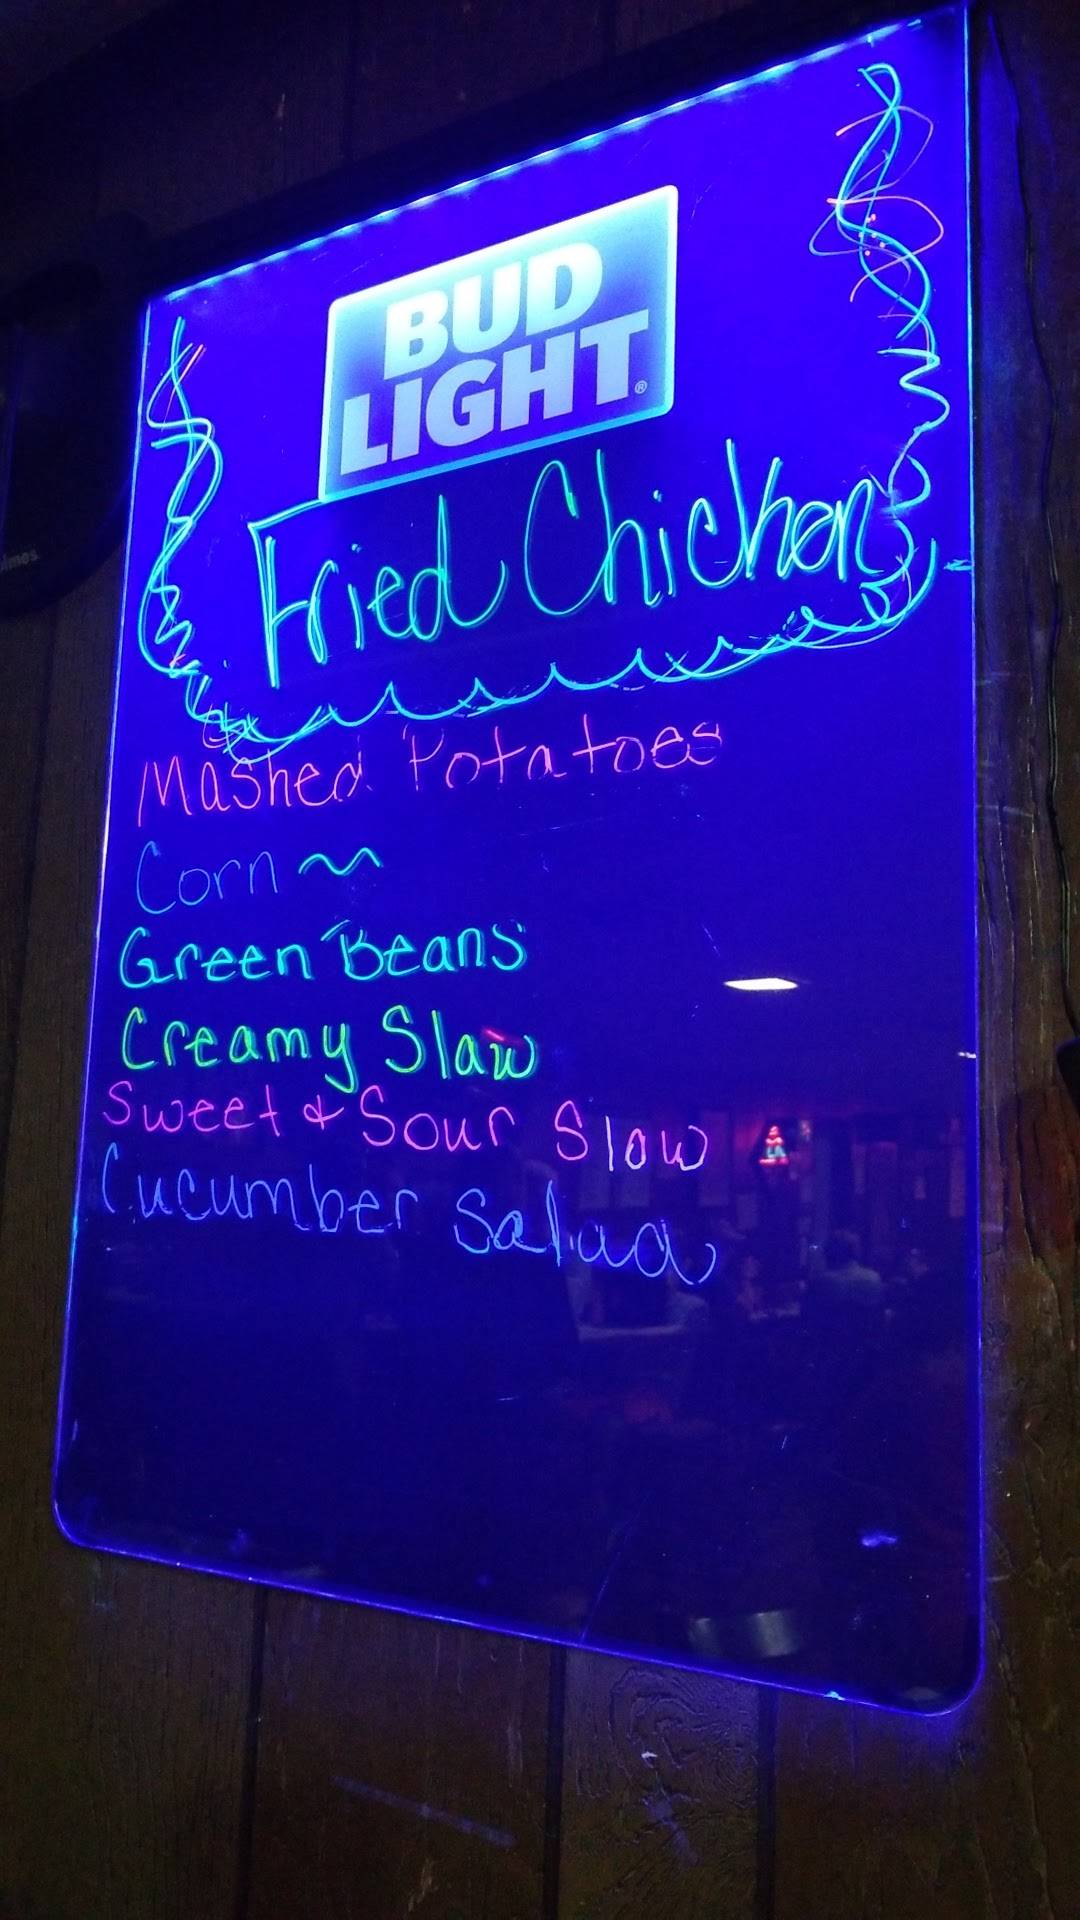 BUD
LIGHT®
Fried Chicken
Mashed Potatoes
Corn ~
Green Beans
Creamy Slaw
Sweet & Sour Slaw
Cucumber Salad